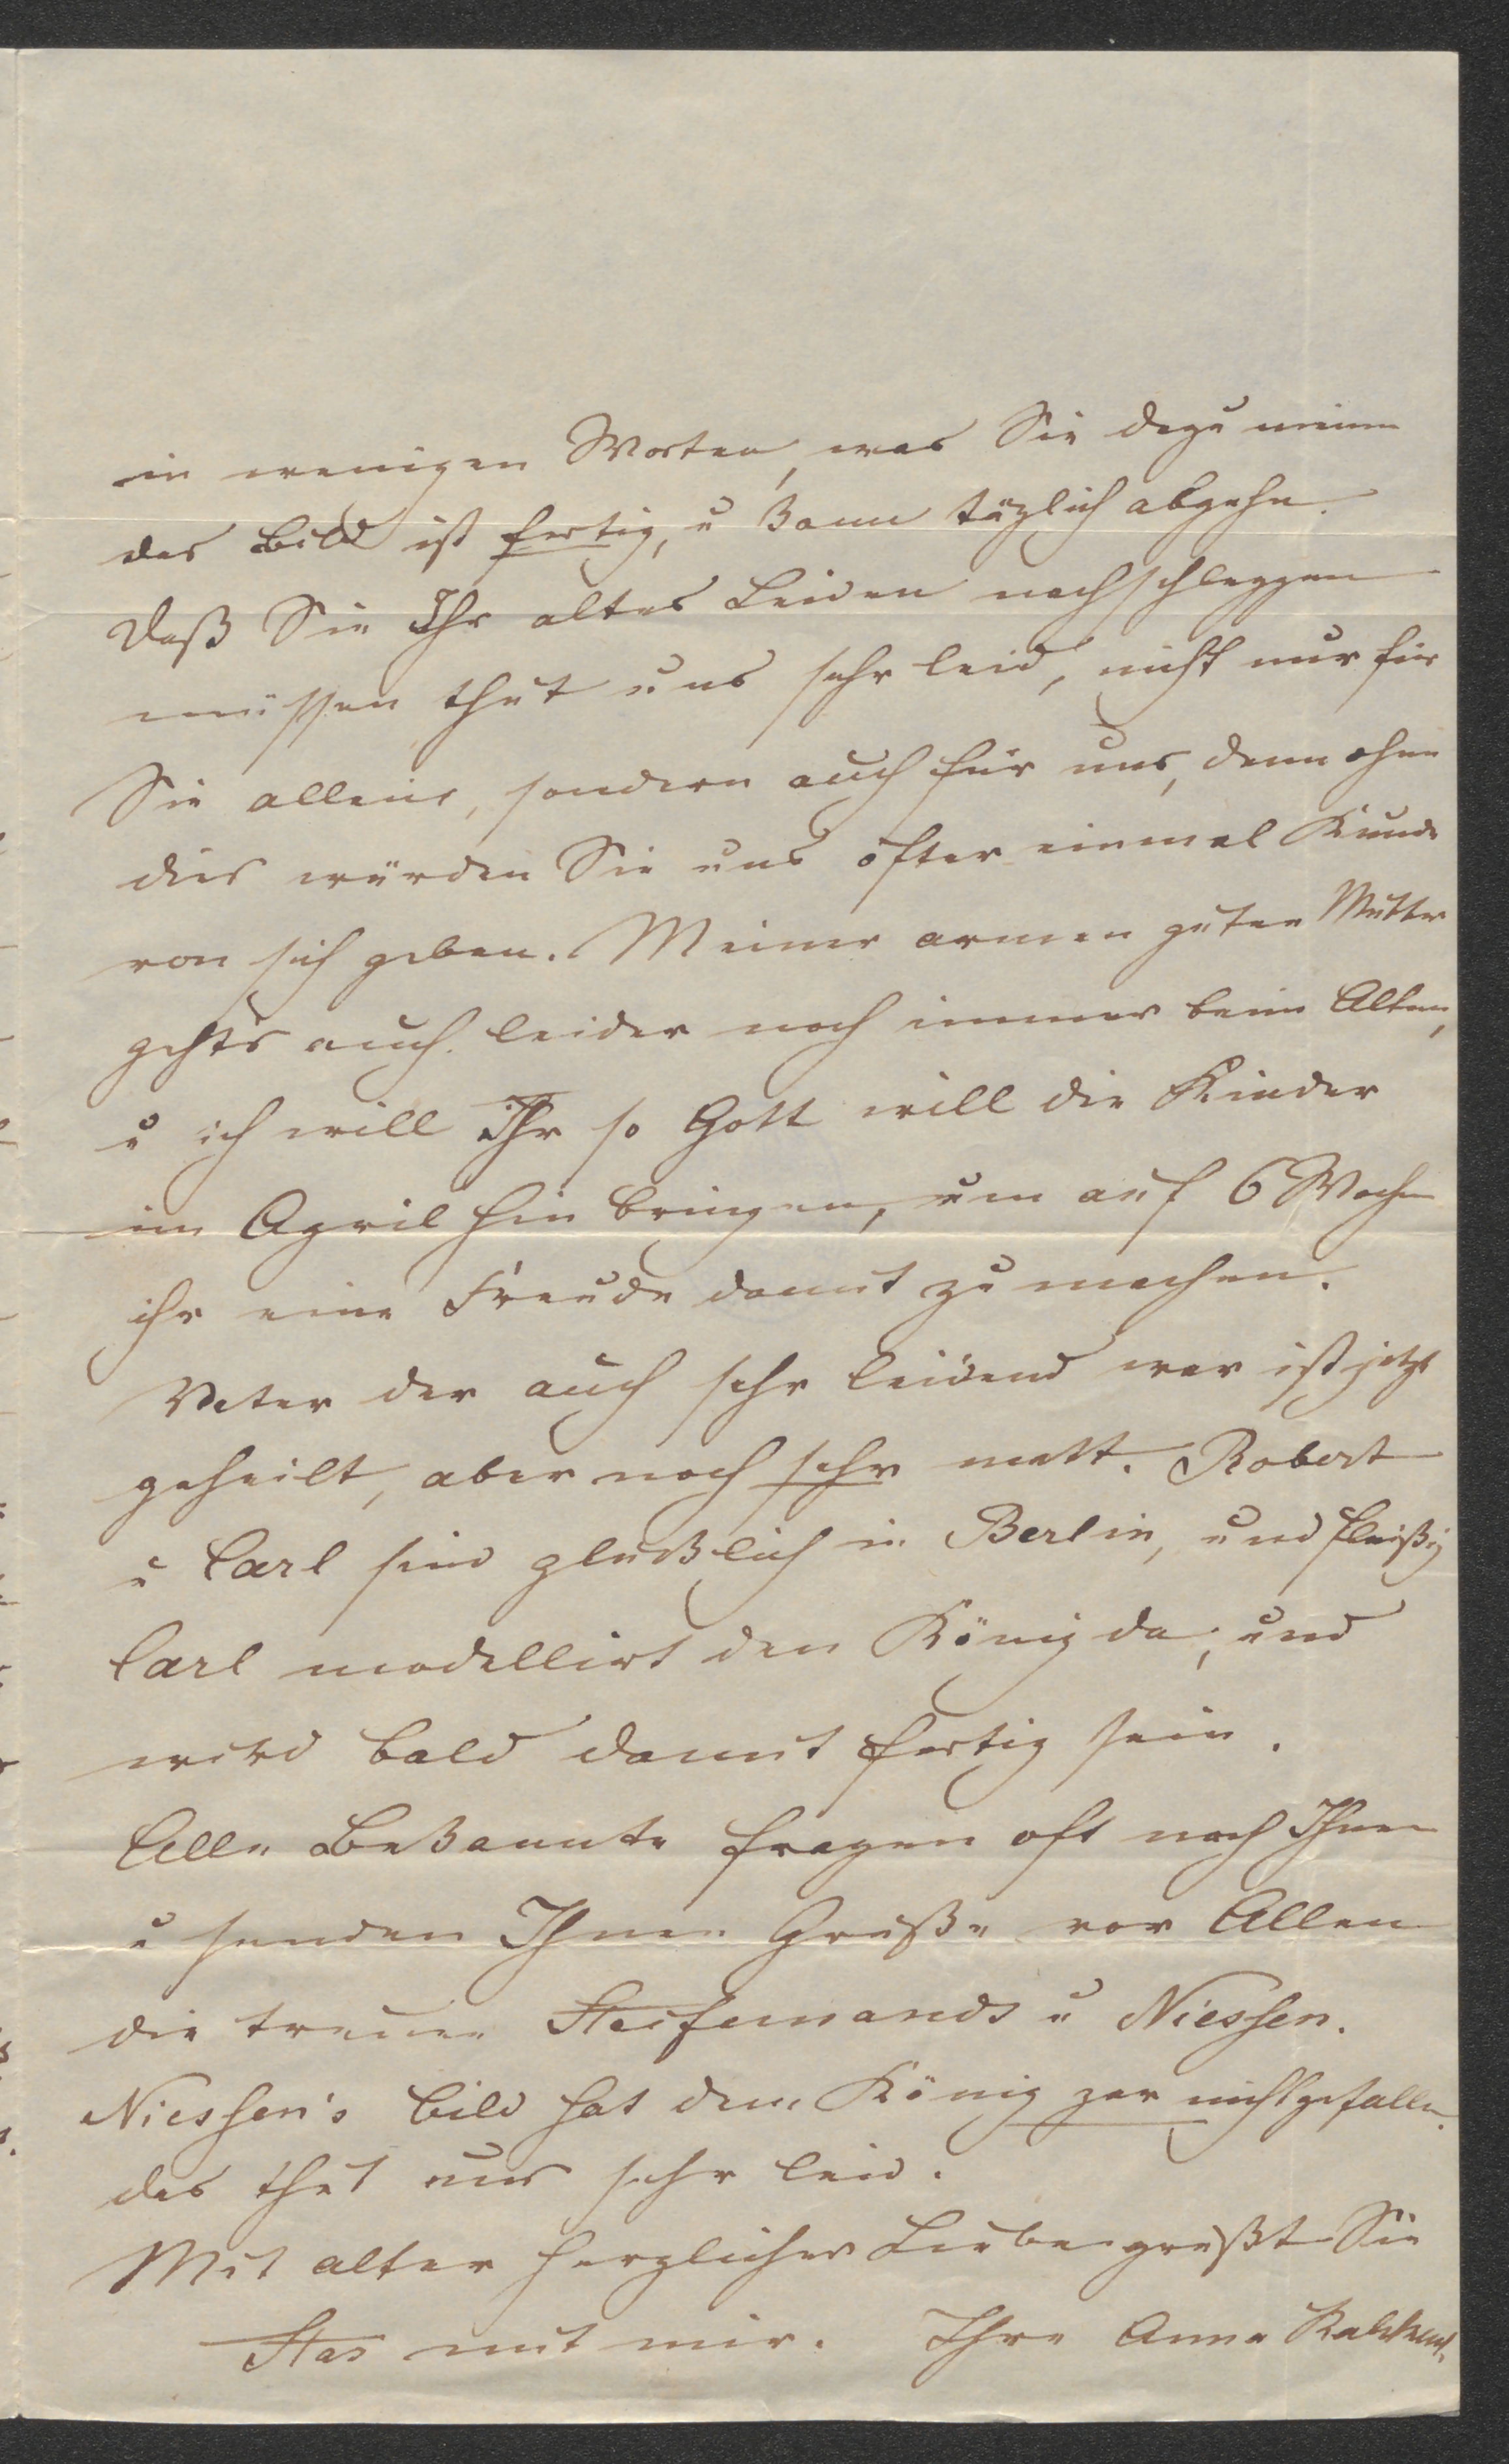 in wenigen Worten, was Sie dazu meinen
das Bild ist fertig, u kann täglich abgehn.
Daß Sie Ihr altes Leiden nachschleppen
müssen thut uns sehr leid, nicht nur für
Sie allein, sondern auch für uns, denn ohne
dies würden Sie uns öfter einmal Kunde
von sich geben. Meiner armen guten Mutter
geht's auch leider noch immer beim Alten,
u ich will Ihr so Gott will die Kinder
im April hin bringen, um auf 6 Wochen
ihr eine Freude damit zu machen.
Vater der auch sehr leidend war ist jetzt
geheilt, aber noch sehr matt. Robert
u Carl sind glücklich in Berlin, und fleißig
Carl modellirt den König da, und
wird bald damit fertig sein.
Alle Bekannte fragen oft nach Ihnen
u senden Ihnen Grüße vor Allen
die treuen Steifemands u Niessen.
Niessen's Bild hat dem König gar nicht gefallen.
das thut uns sehr leid.
Mit alter herzlicher Liebe grüßt Sie
Stas mit mir. Ihre Anna